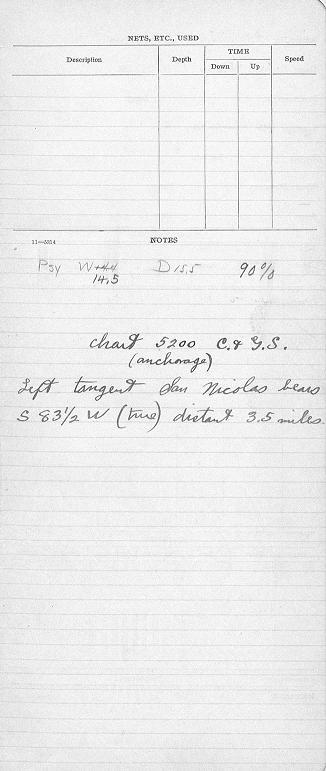 NETS, ETC., USED
Description Depth TIME Speed
Down Up
11—5314 NOTES
Psy W 14.4 D 15.5 90%
14.5
chart 5200 C. & G. S.
(anchorage)
Left tangent San Nicolas bears
S 83 1/2 W (true) distant 3.5 miles.